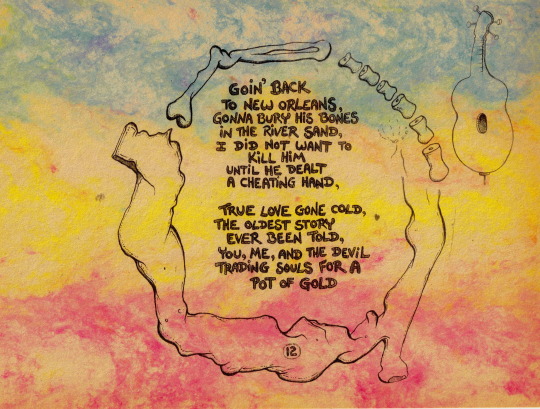 GOIN' BACK
TO NEW ORLEANS,
GONNA BURY HIS BONES
IN THE RIVER SAND,
I DID NOT WANT TO
KILL HIM
UNTIL HE DEALT
A CHEATING HAND,
TRUE LOVE GONE COLD,
THE OLDEST STORY
EVER BEEN TOLD,
YOU, ME, AND THE DEVIL
TRADING SOULS FOR A
POT OF GOLD
12